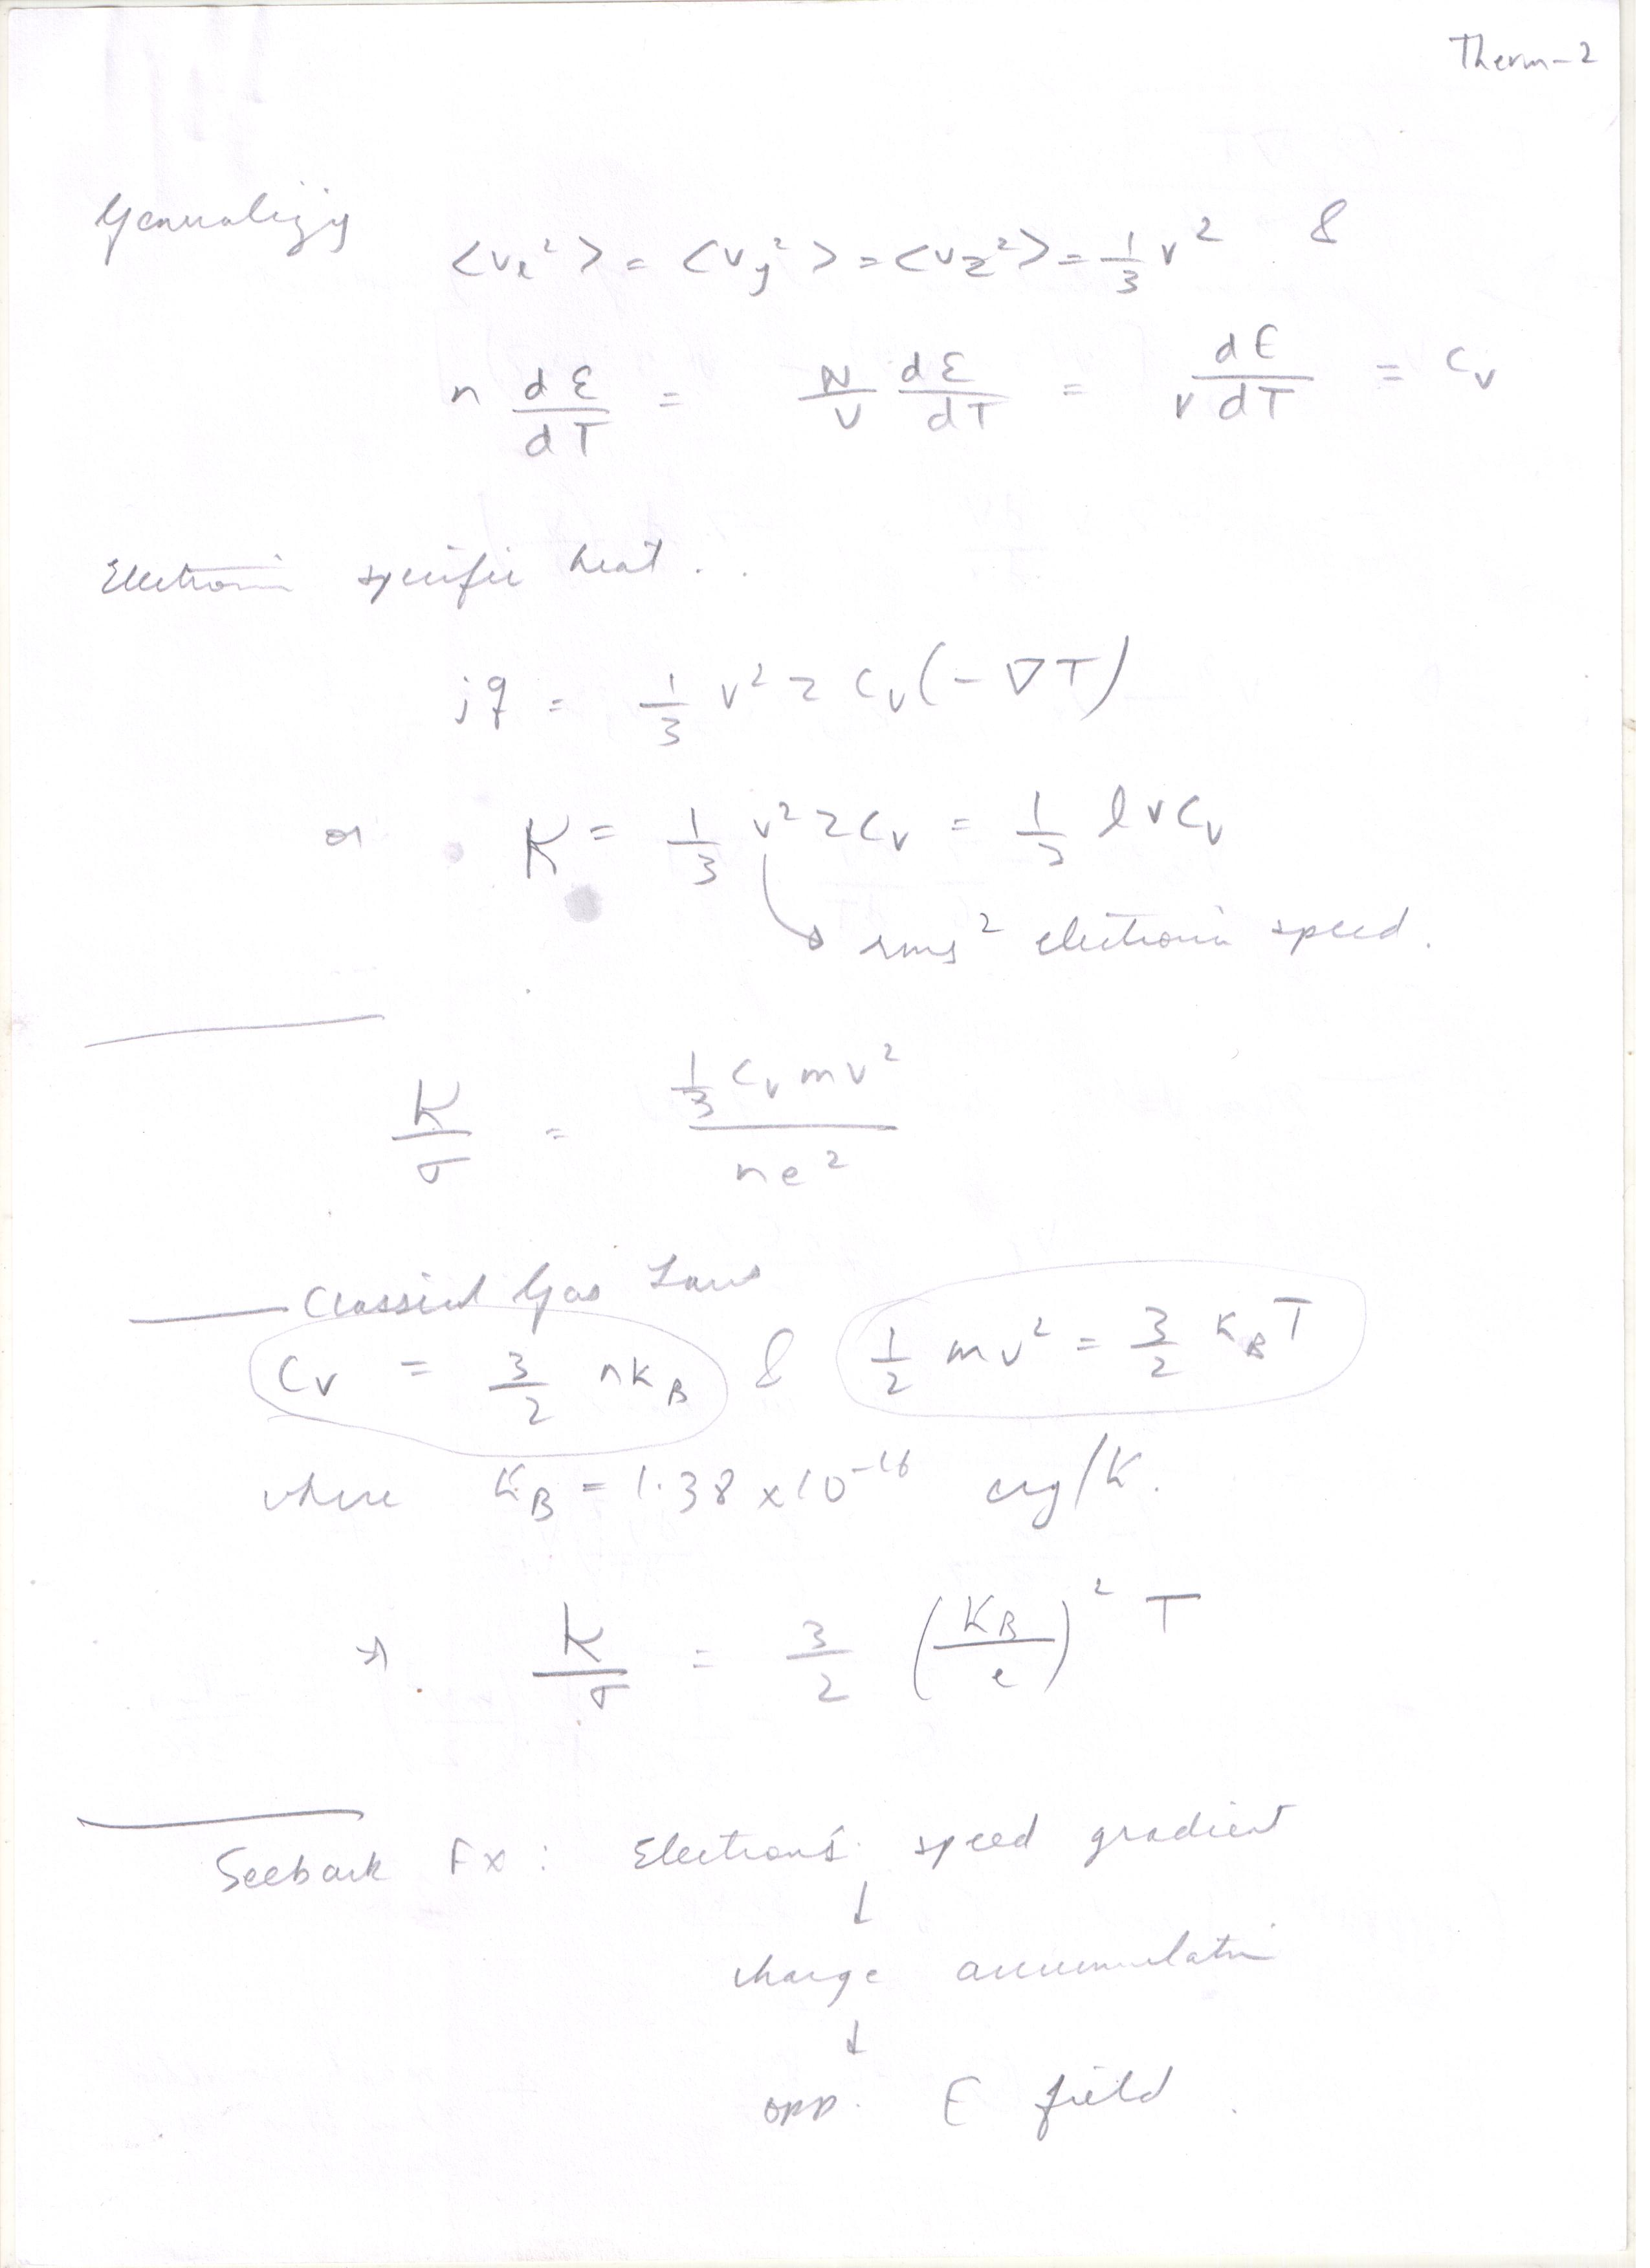 Therm-2
Generalizing
<vx²> = <vy²> = <vz²> = 1/3 v² &
n dε/dT = N/V dε/dT = dE/VdT = Cv
Electronic specific heat ..
jq = 1/3 v² τ Cv (-∇T)
or K = 1/3 v² τ Cv = 1/3 l v Cv
rms² electronic speed.
K/σ = 1/3 Cv mv² / ne²
Classical Gas Laws
Cv = 3/2 nKB & 1/2 mv² = 3/2 KBT
where KB = 1.38 x 10⁻¹⁶ erg/K.
⇒ K/σ = 3/2 (KB/e)² T
Seeback Fx : Electrons speed gradient
↓
charge accumulation
↓
opp. E field.